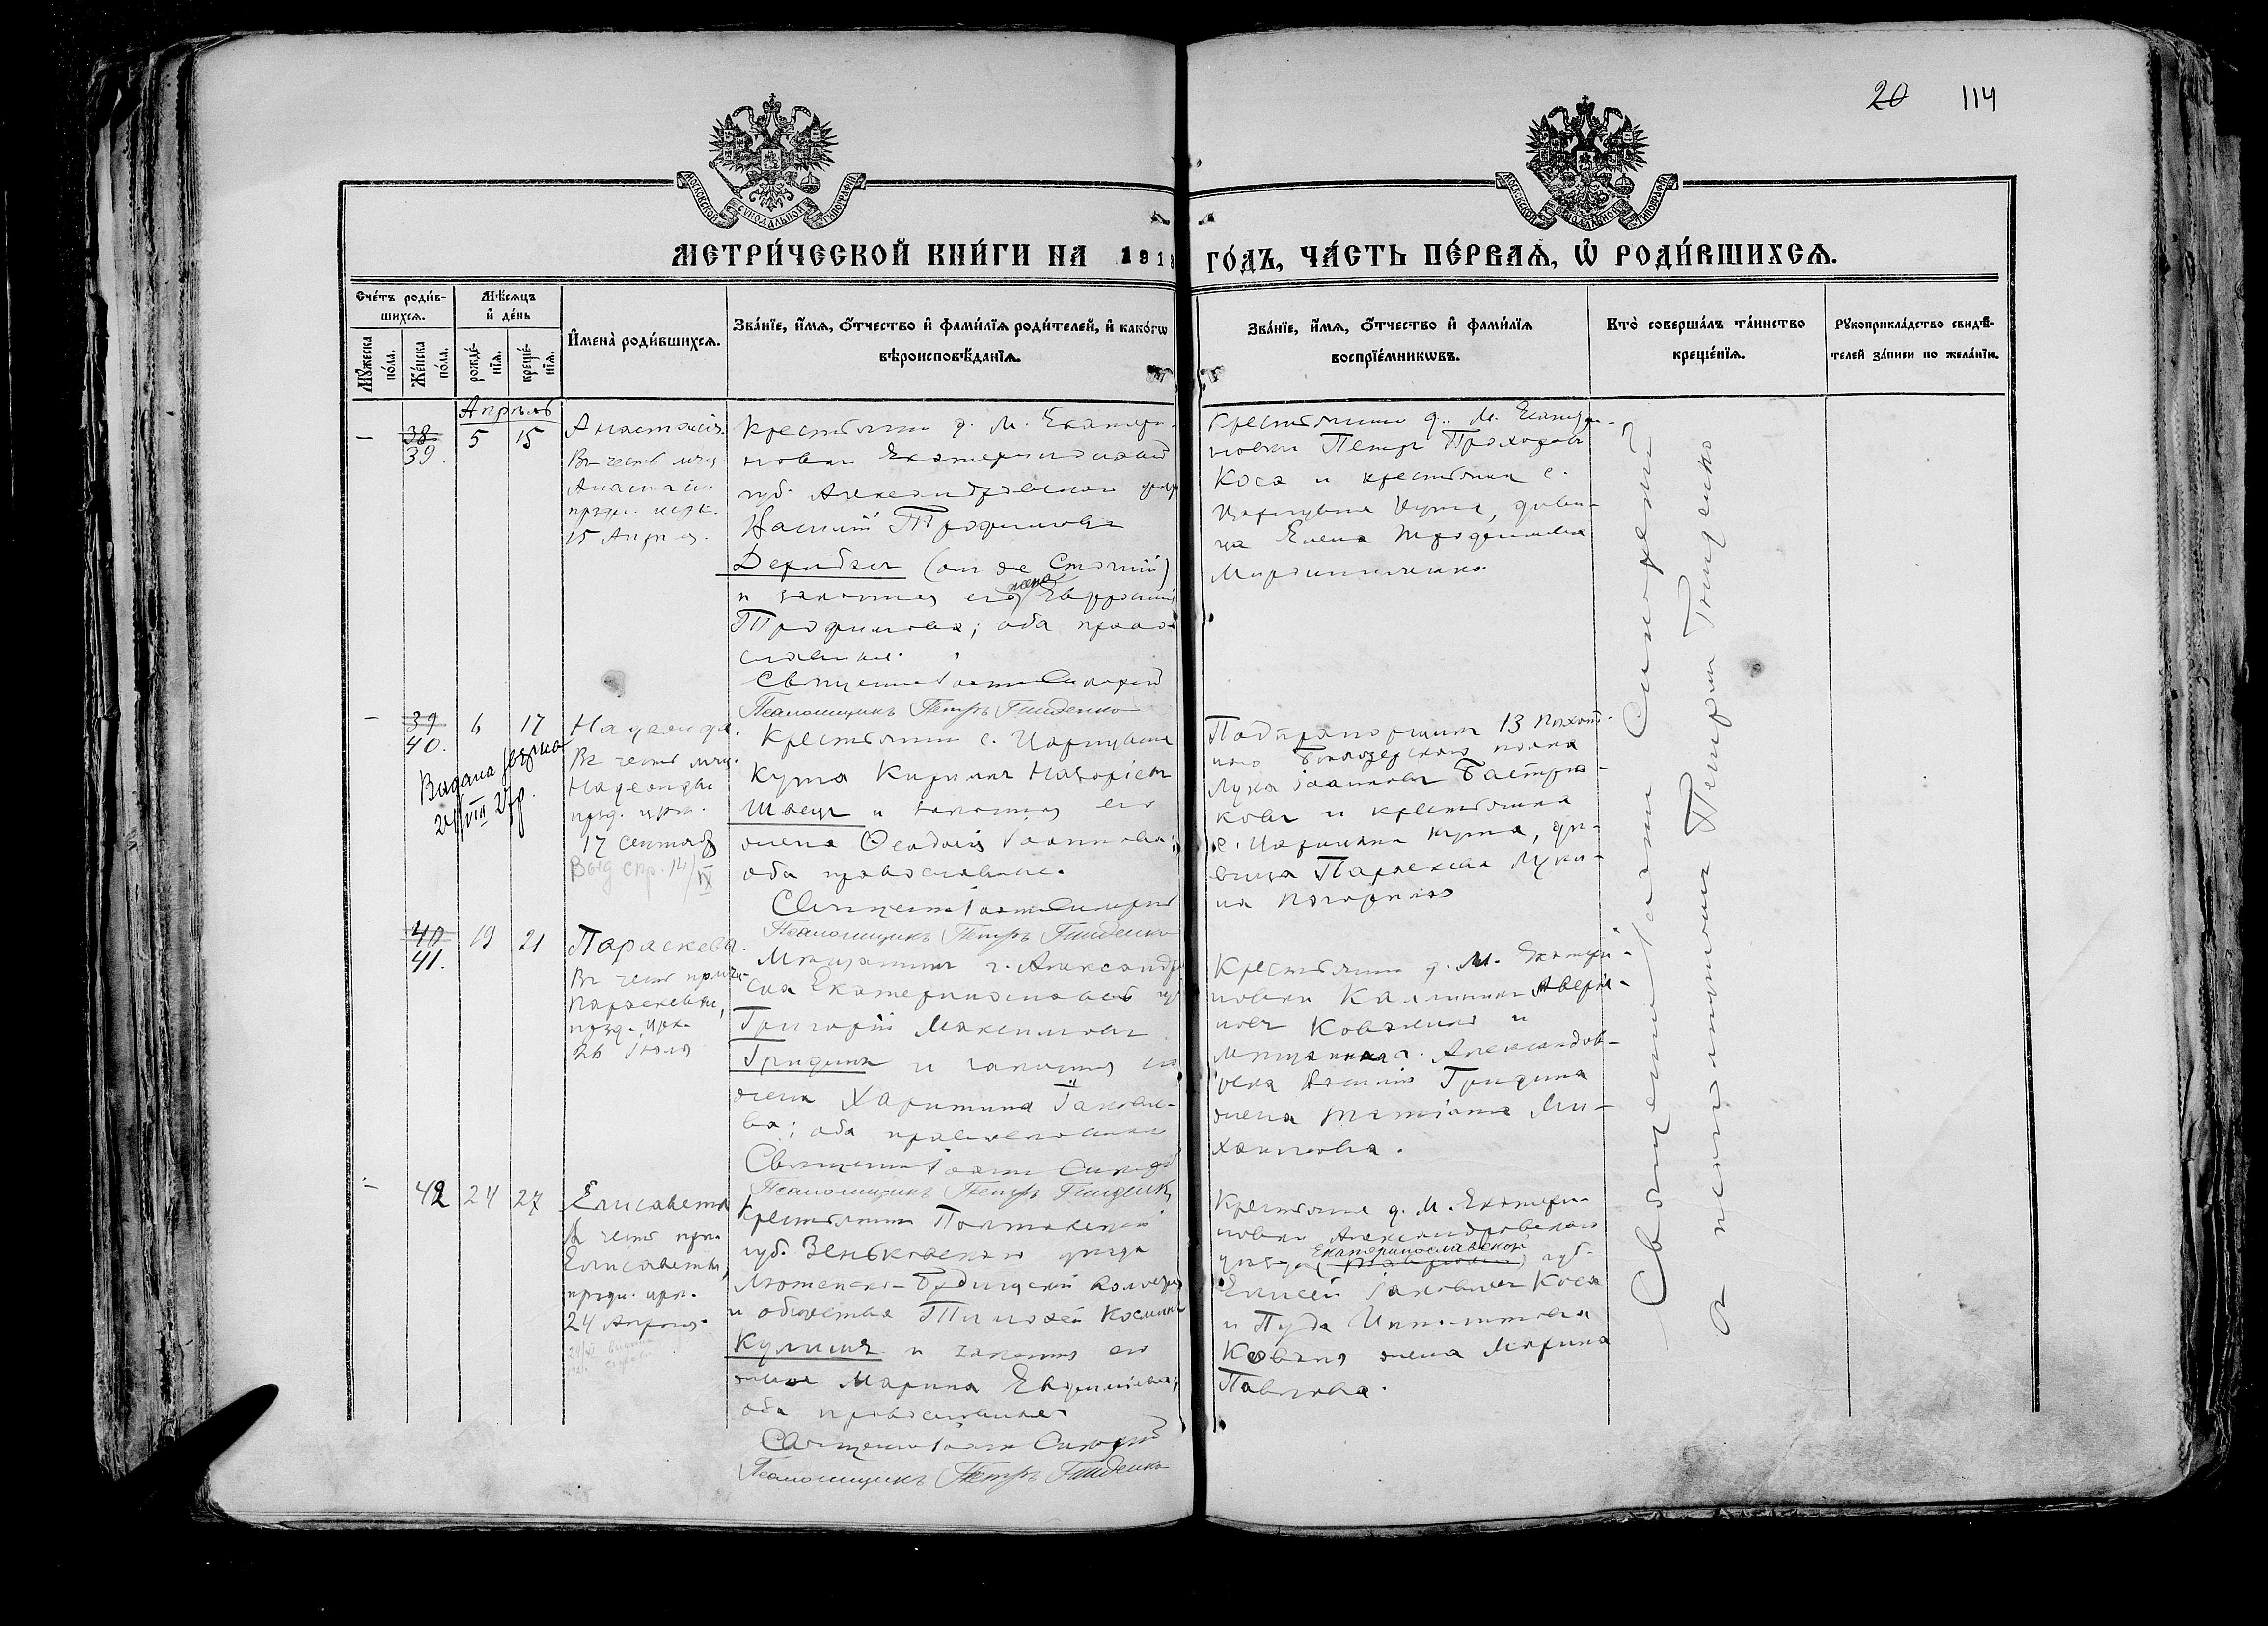 20 114
МОСКОВСКОЙ СѴНОДАЛЬНОЙ ТИПОГРАФІИ
МОСКОВСКОЙ СѴНОДАЛЬНОЙ ТИПОГРАФІИ
МЕТРИ́ЧЕСКОЙ КНИ́ГИ НА 1918 ГО́ДЪ, ЧА́СТЬ ПЕ́РВАѦ, Ѡ҆ РОДИ́ВШИХСѦ.
Сче́тъ роди́в-
шихсѧ.
Мꙋ́жеска по́ла.
Же́нска по́ла.
Мѣ́сѧцъ
и҆ де́нь
рожде́-
нїѧ.
креще́-
нїѧ.
И҆мена̀ роди́вшихсѧ.
Зва́нїе, и҆́мѧ, ѻ҆́тчество и҆ фами́лїѧ роди́телей, и҆ како́гѡ
вѣроисповѣ́данїѧ.
Зва́нїе, и҆́мѧ, ѻ҆́тчество и҆ фами́лїѧ
воспрїе́мникѡвъ.
Кто̀ соверша́лъ та́инство
креще́нїѧ.
Рꙋкоприкла́дство свидѣ́-
телей за́писи по жела́нїю.
Апрѣль
— 38 5 15
39.
Анастасія.
Въ честь мчц.
Анастасіи
празд. церк.
15 Апрѣля.
Крестьянин д. М. Екатери-
новки Екатеринославской
губ. Александровскаго
Василий Трофимовъ
Дерибасъ (он же Стоний)
и законная его жена Евфросинія
Трофимова; оба право-
славные.
Священник Іоаннъ
Псаломщикъ Петръ Гниденко
Крестьянин д. М. Екатери-
новки Петръ Прохоровъ
Коса и крестьянка с.
Царицына Кута, деви-
ца Елена Трофимова
Мирошниченко
- 39 6 17
40.
Видана
24/VIII 27р.
Надежда.
Въ честь мчц.
Надежды
празд. церк.
17 Сентября
Выд спр. 14/IX
Крестьянин с. Царицына
Кута Кирилл
Швецъ и законная его
жена Ѳеодосія Іоаннова;
оба православные.
Священник Іоаннъ
Псаломщикъ Петръ Гниденко
Подпрапорщик 13 пѣхот-
наго Бѣлозерскаго полка
Лука Іоанновъ Бастри-
ковъ и крестьянка
с. Царицына Кута, дѣ-
вица Параскева Луки-
на
40 19 21
41.
Параскева.
Въ честь прмчц.
Параскевы,
празд. црк.
26 Іюля
Мѣщанинъ г. Александров-
ска Екатеринославской губ
Григорій Максимовъ
Гридинъ и законная его
жена Харитина Іаковле-
ва; оба православные
Священник Іоаннъ
Псаломщикъ Петръ Гниденко
Крестьянин д. М. Екатери-
новки Каллиникъ Аверкі-
евъ Коваленко и
мѣщанина г. Александров-
ска Василія Гридина
жена Татіана Ми-
хаилова.
- 42 24 27
Елисавета
Въ честь прп.
Елисаветы,
празд. црк.
24 Апрѣля.
Крестьянинъ Полтавской
губ. Зеньковскаго уѣзда
Лютенско-Будищской волости
и общества Тимофей Космин
Кулишъ и законная его
жена Марина Евфиміева;
оба православные
Священник Іоаннъ
Псаломщикъ Петръ Гниденко
Крестьяне д. М. Екатери-
новки Александровскаго
уѣзда Екатеринославской губ.
Елисей Іаковлевъ Коса
и Пуда Ипполитова
Коваля жена Марина
Павлова.
Священник Іоаннъ
и псаломщикъ Петръ Гниденко